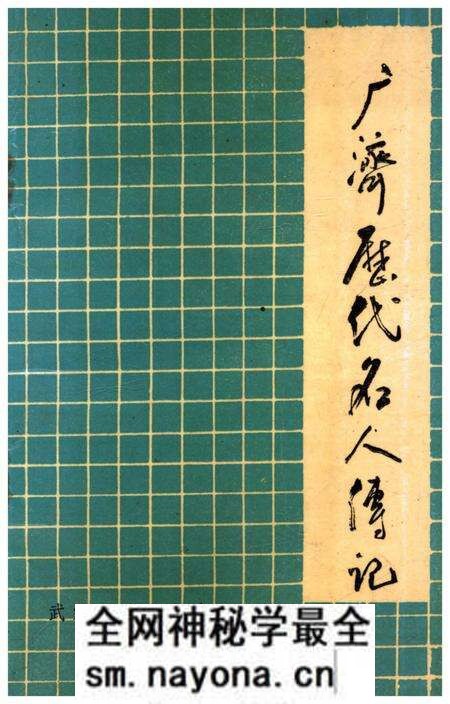 广济歷代名人傳記
武
全网神秘学最全
sm.nayona.cn